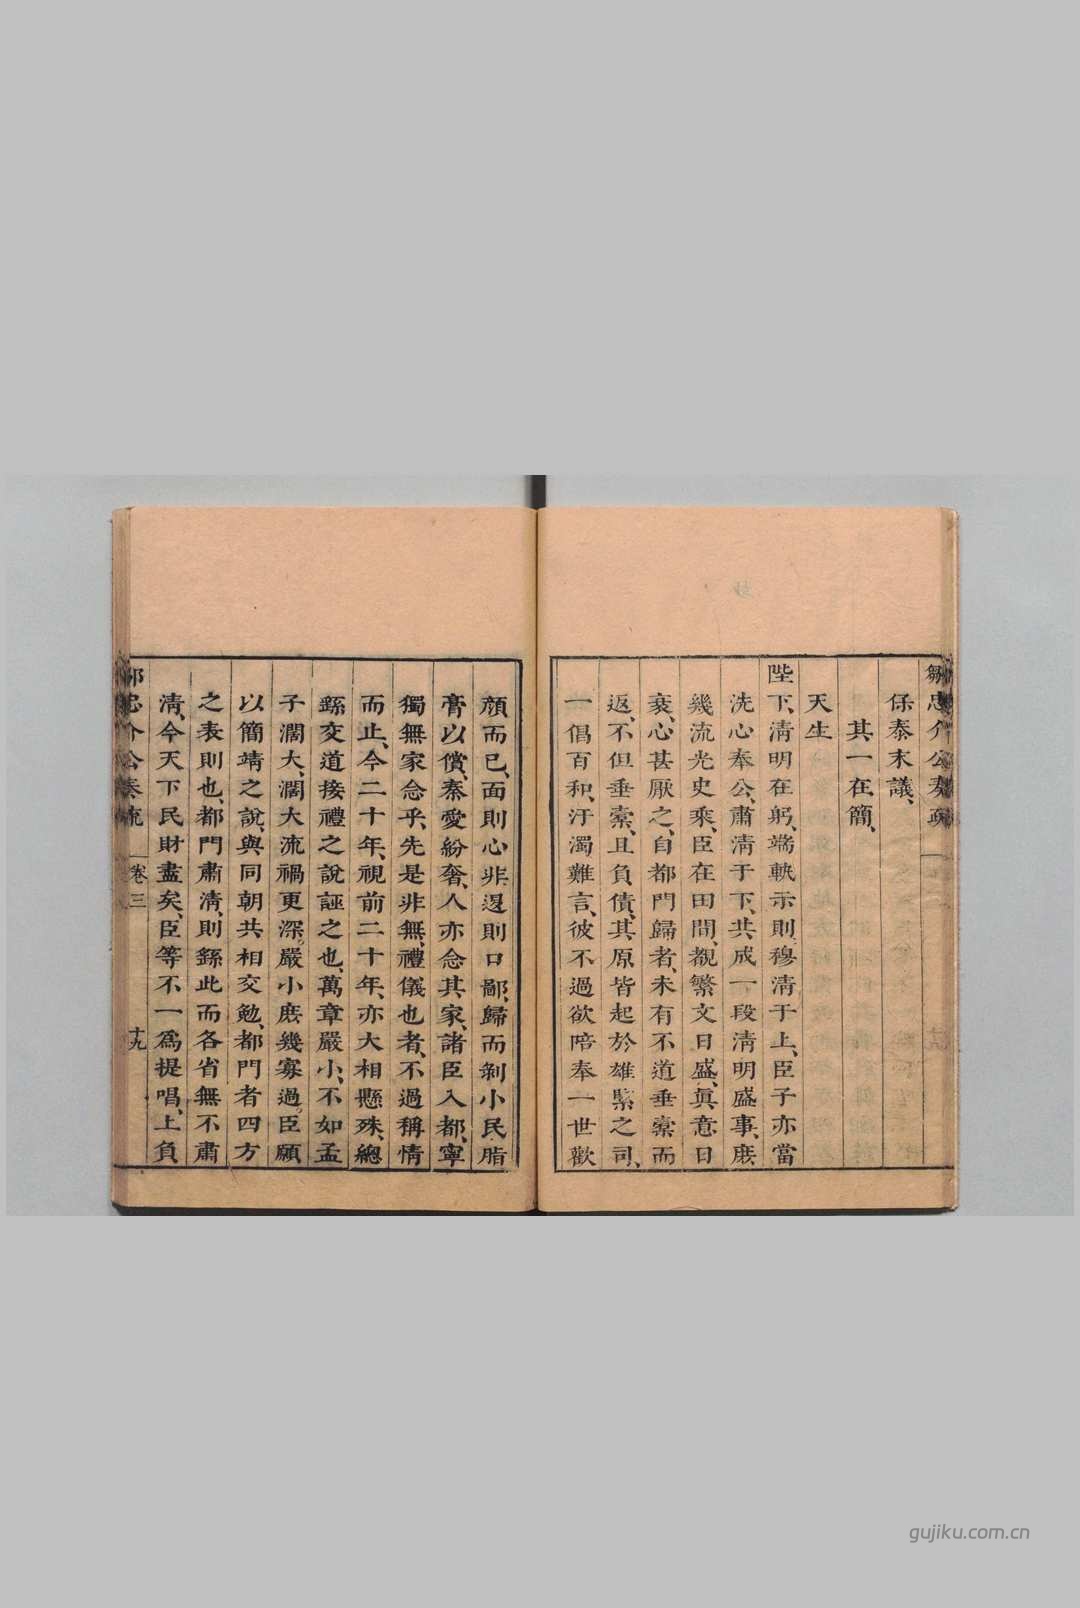 保泰末議、
其一在簡、
天生
陛下、清明在躬、端軌示則、穆清于上、臣子亦當
洗心奉公、肅清于下、共成一段清明盛事、庶
幾流光史乘、臣在田間、覩繁文日盛、眞意日
衰、心甚厭之、自都門歸者、未有不道垂槖而
返、不但垂槖、且負債、其原皆起於雄緊之司、
一倡百和、汙濁難言、彼不過欲陪奉一世歡
顔而已、面則心非、退則口鄙、歸而剝小民脂
膏以償、秦愛紛奢、人亦念其家、諸臣入都、寧
獨無家念乎、先是非無禮儀也者、不過稱情
而止、今二十年、視前二十年、亦大相懸殊、總
繇交道接禮之說誣之也、萬章嚴小、不如孟
子濶大、濶大流禍更深。嚴小庶幾寡過。臣願
以簡靖之說、與同朝共相交勉、都門者四方
之表則也、都門肅清、則繇此而各省無不肅
清、今天下民財盡矣、臣等不一爲提唱、上負
鄒忠介公奏疏 卷三 十九
gujiku.com.cn